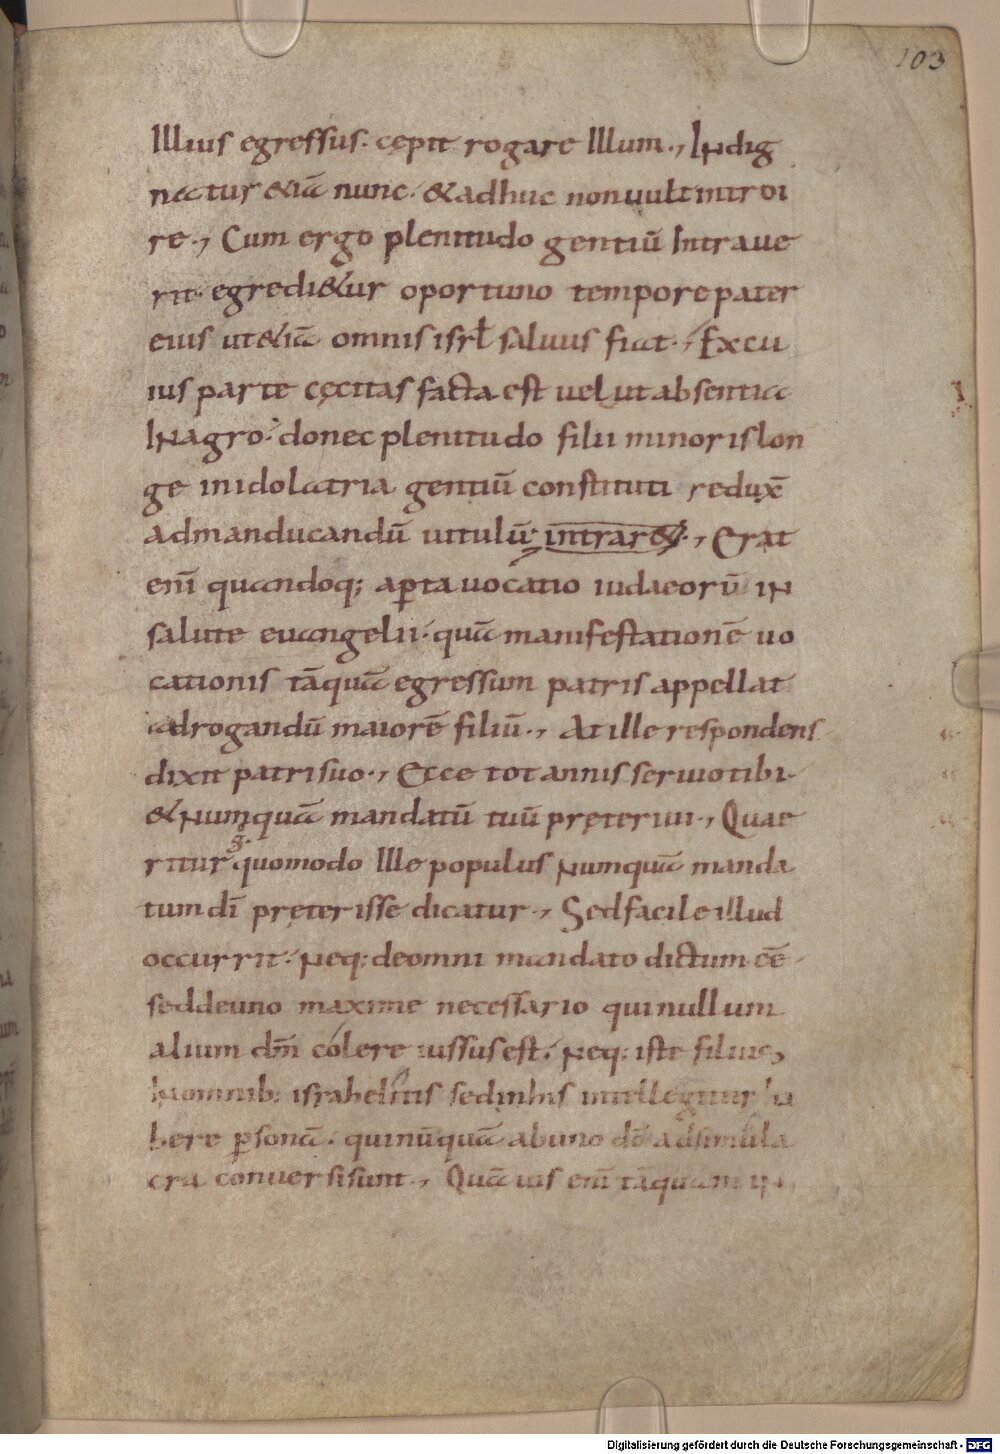 103
Illius egressus· cępit rogare Illum·, Indig
natur &iā nunc· & adhuc non uult introi
re·, Cum ergo plenitudo gentiū Intraue
rit· egredi&ur oportuno tempore pater
eius ut &iā omnis isrł saluus fiat·, Ex cu
ius parte cęcitas facta est uelut absentia
In agro· donec plenitudo filii minoris lon
ge in idolatria gentiū constituti redux̄
admanducandū uitulū· intrar&·, Erat
enī quandoq; aꝑta uocatio iudaeorū in
salute euangelii· quā manifestationē uo
cationis tāquā egressum patris appellat
adrogandū maiorē filiū·, At ille respondens
dixit patri suo·, Ecce tot annis seruio tibi·
& numquā mandatū tuū pręteriui·, Quae
ritur quomodo Ille populus numquā manda
tum dī pręterisse dicatur·, Sed facile illud
occurrit· neq: de omni mandato dictum eē
sed de uno maxime necessario qui nullum
alium dm̄ colere iussus est· neq: iste filius
In omnib: israhelitis sed in his intellegitur ha
bere ꝑsonā· qui nūquā ab uno dō ad simula
cra conuersi sunt·, Quā uis enī tāquam in
Digitalisierung gefördert durch die Deutsche Forschungsgemeinschaft - DFG